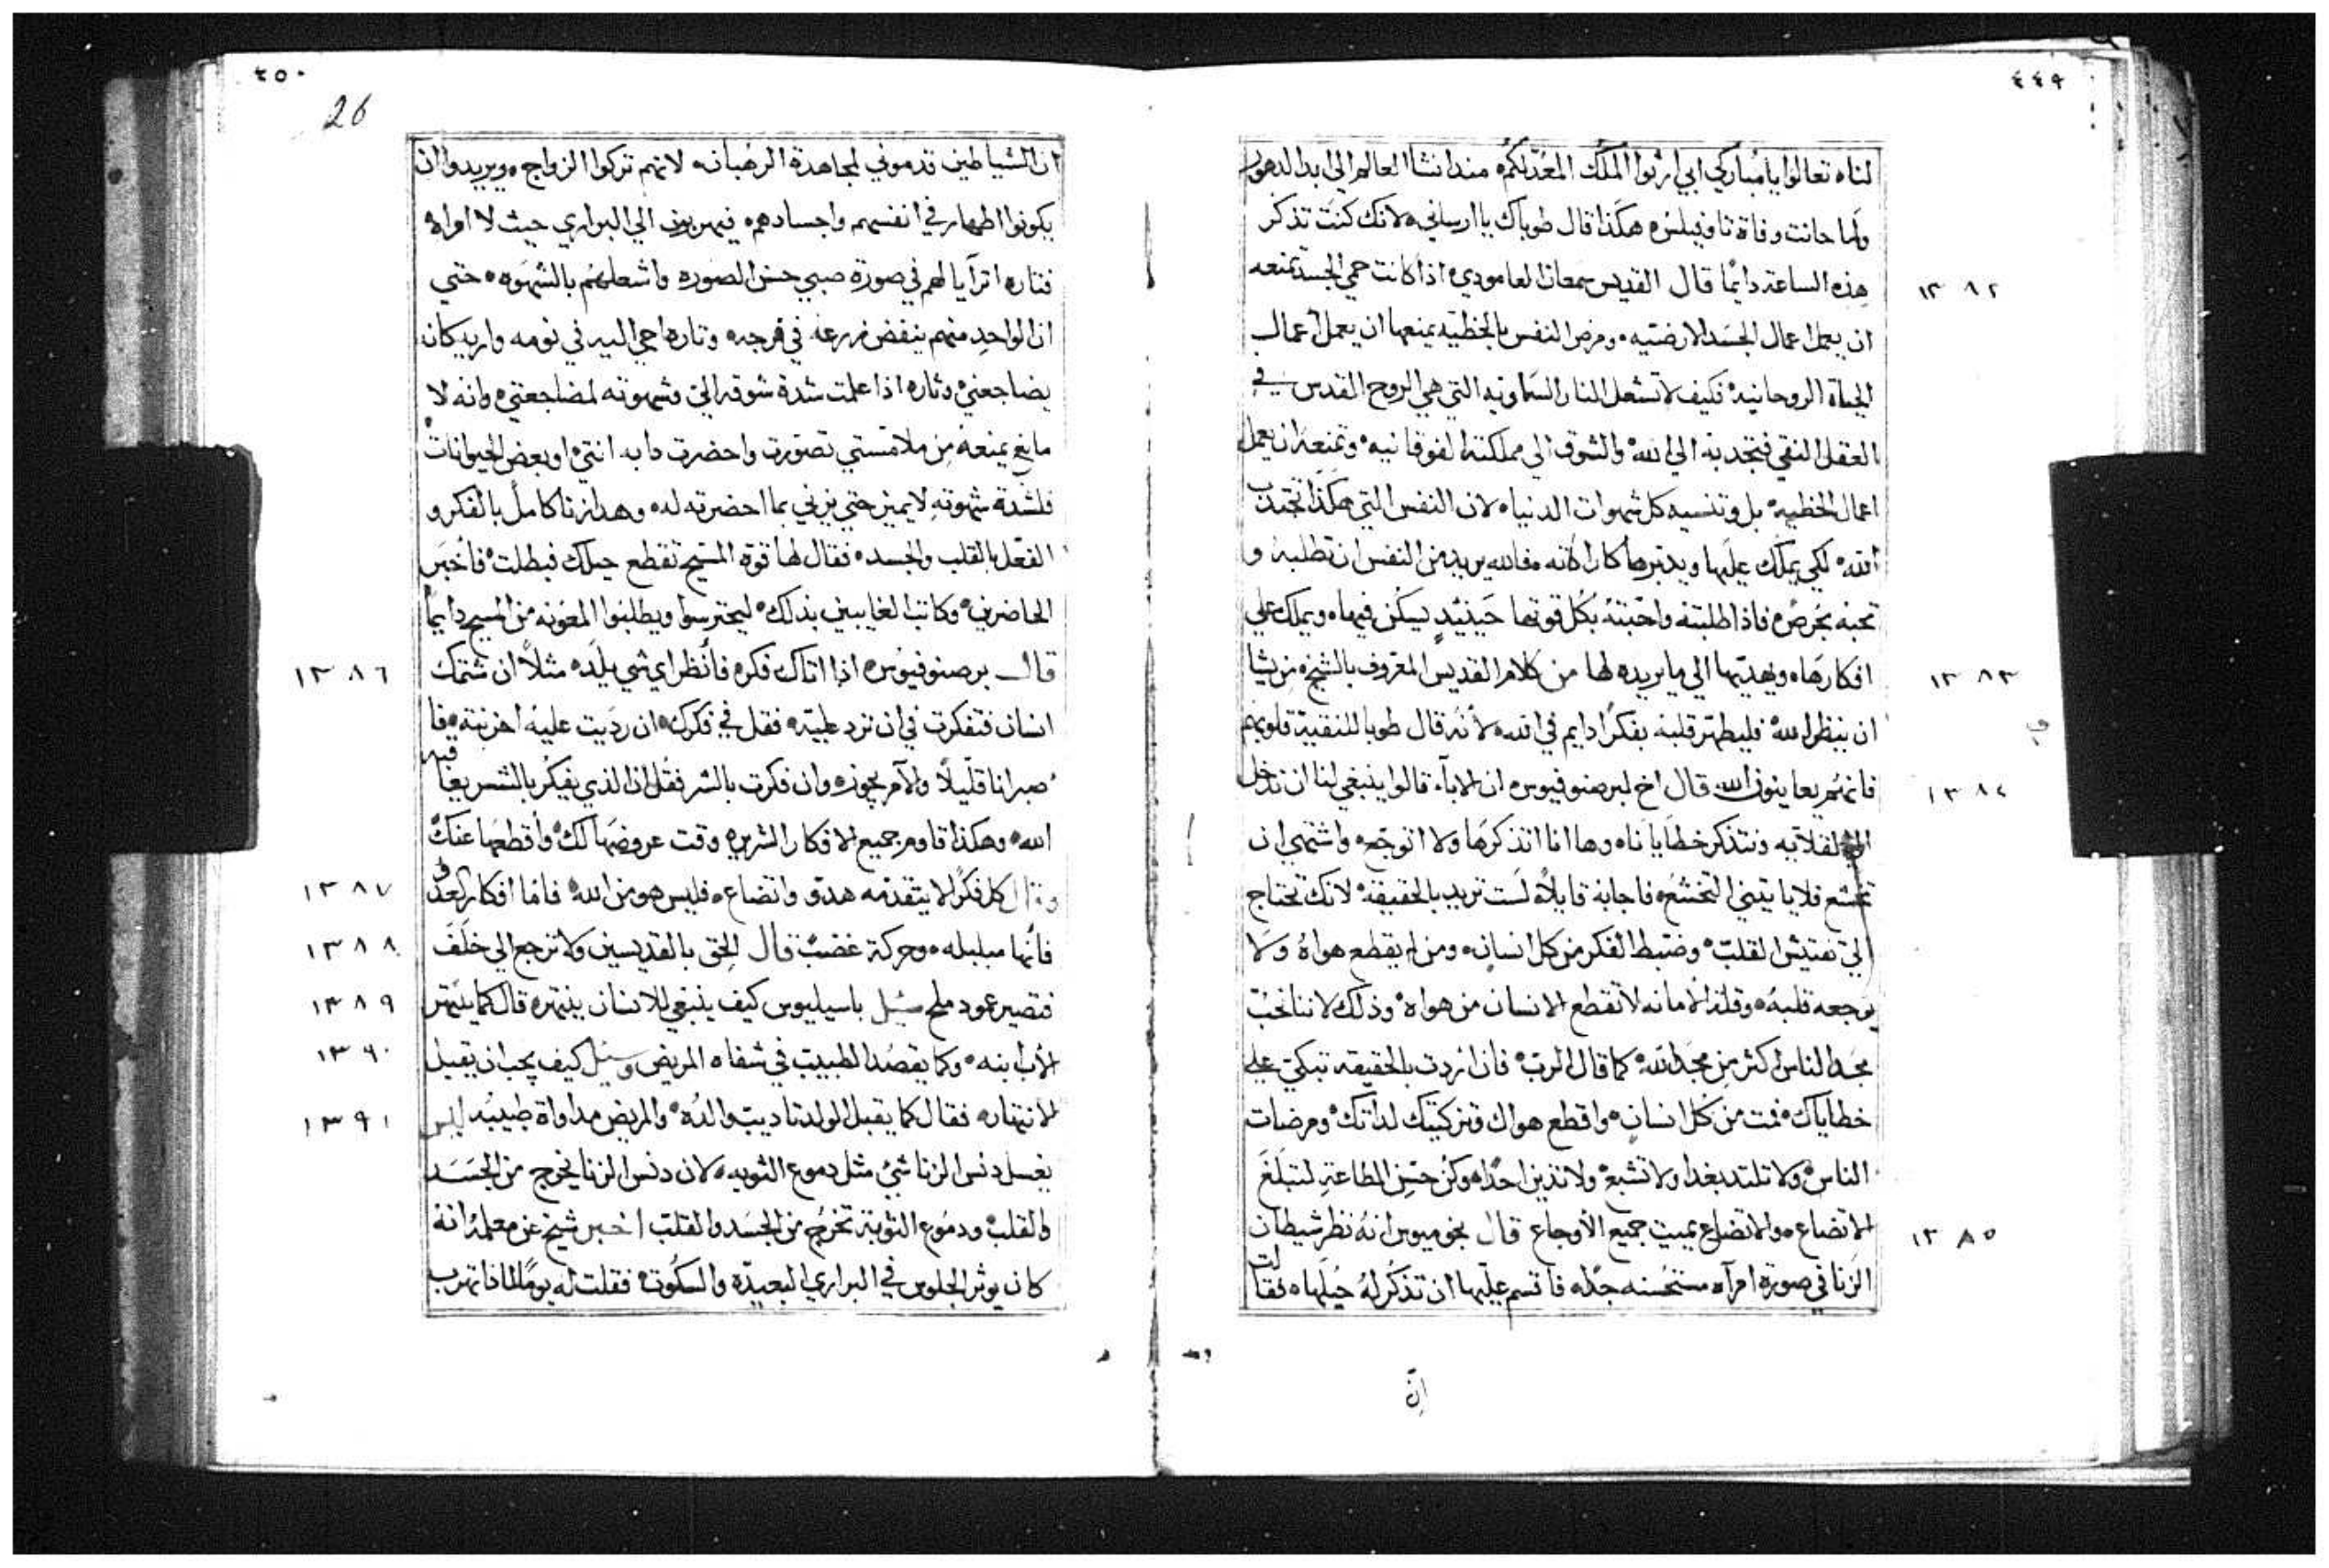 ٤٤٩
لنا ه تعالوا يا مباركي ابي ارثوا الملك المعد لكم ه مند انشا العالم الي ابد الدهور
ولما حانت وفاة تاوفيلس ه هكذا قال طوباك يا ارساني ه لانك كنت تذكر
هذه الساعة دايمًا قال القديس سمعان العامودي اذا كانت حمي الجسد تمنعه
١٣٨٢
ان يعمل اعمال الجسد الارضيه ٠ ومرض النفس بالخطيه يمنعها ان يعمل أعمال
الحياة الروحانية ه فكيف لا تشعل النار السماويه التي هي الروح القدس في
العقل النقي فتجدبه الي الله ه والشوق الي مملكته الفوقانيه ه وتمنعه ان يعمل
اعمال الخطيه ه بل وتنسيه كل شهوات الدنيا ه لان النفس التي هكذا تجتدب
الله ه لكي يملك عليها ويدبرها كاراداته ه فالله يريد من النفس ان تطلبه و
تحبه بحرص ه فاذا طلبته واحبته بكل قوتها حينيدٍ يسكن فيها ه ويملك علي
افكارها ه ويهديها الي ما يريده لها من كلام القديس المعروف بالشيخ ه من يشا
١٣٨٣
ان ينظر الله ه فليطهر قلبه بفكرًا دايم في الله ه لأنه قال طوبا للنقيه قلوبهم
فانهم يعاينون الله ٠ قال اخ لبرصنوفيوس ه ان الابآء قالوا ينبغي لنا ان ندخل
١٣٨٤
القلايه ونتذكر خطايانا ه وها انا اتذكرها ولا اتوجع ه واشتهي ان
تخشع فلا ياتيني التخشع ه فاجابه قايلًا ه لست تريد بالحقيقة ه لانك تحتاج
الي تفتيش القلب ه وضبط الفكر من كل انسان ه ومن لم يقطع هواهُ ولا
يوجعه قلبه ه وقلة الامانه لا تقطع الانسان من هواه ه وذلك لاننا نحب
مجد الناس اكثر من مجد الله ه كما قال الرب ه فان اردت بالحقيقه تبكي علي
خطاياك ه فمت من كل انسان ه واقطع هواك وتزكيتك لداتك ه ومرضات
الناس ه ولا تلتد بغدا ولا تشبع ه ولا تذين احدًا ه وكن حسن الطاعة لتبلغ
الاتضاع ه والاتضاع يميت جميع الأوجاع قال بخوميوس انه نظر شيطان
١٣٨٥
الزنا في صورة امرآه مستحسنه جدًا ه فاقسم عليها ان تذكر له حيلها ه فقالت
انّ
٤٥٠
26
ان الشياطين قدموني لمجاهدة الرهبان ه لانهم تركوا الزواج ه ويريدوا ان
يكونوا اطهار في انفسهم واجسادهم ه فيهربون الي البراري حيث لا امراه
فتاره اترآيا لهم في صورة صبي حسن الصوره واشعلهم بالشهوه ه حتي
ان الواحد منهم ينفض زرعه في فرجه ه وتاره اجي اليه في نومه واريه كان
يضاجعني ه وتاره اذا علمت شدة شوقه الي وشهوته لمضاجعتي ه وانه لا
مانع يمنعه من ملامستي تصورت واحضرت دابه انتي ه او بعض الحيوانات ه
فلشدة شهوته لا يميز حتي يزني بما احضرته له ه وهدا زنا كامل بالفكر و
الفعل بالقلب والجسد ه فقال لها قوة المسيح تقطع حيلك فبطلت ه فأخبر
الحاضرين ه وكاتب الغايبين بذلك ه ليحترسوا ويطلبوا المعونه من المسيح دايمًا
قال برصنوفيوس ه اذا اتاك فكر ه فأنظر اي شي يلد ه مثلًا ان شتمك
١٣٨٦
انسان فتفكرت في ان ترد عليه ه فقل في فكرك ه ان رديت عليه احزنته ه فا
صبر انا قليلًا والآمر يجوز ه وان فكرت بالشر فقل ان الذي يفكر بالشر يعنا فيه
الله ه وهكذا قاوم جميع الافكار الشريره وقت عروضها لك ه وأقطعها عنك ه
وقال كل فكرًا لا يتقدمه هدو واتضاع ه فليس هو من الله ه فاما افكار العدو
١٣٨٧
فأنها مبلبله ه وحركة غضب ه قال الحق بالقديسين ولا ترجع الي خلف
١٣٨٨
فتصير عمود ملح سيل باسيليوس كيف ينبغي للانسان ينتهر ه قال كما ينتهر
١٣٨٩
الأب ابنه ه وكما يقصد الطبيب في شفاه المريض وسيل كيف يجب ان يقبل
١٣٩٠
الانتهار ه فقال كما يقبل الولد تاديب والده ه والمريض مداواة طبيبه ليس
١٣٩١
يغسل دنس الزنا شيً مثل دموع التوبه ه لان دنس الزنا يخرج من الجسد
والقلب ه ودموع التوبة تخرج من الجسد والقلب اخبر شيخ عن معلمه انه
كان يوثر الجلوس في البراري البعيدة والسكوت ه فقلت له يومًا لماذا تهرب